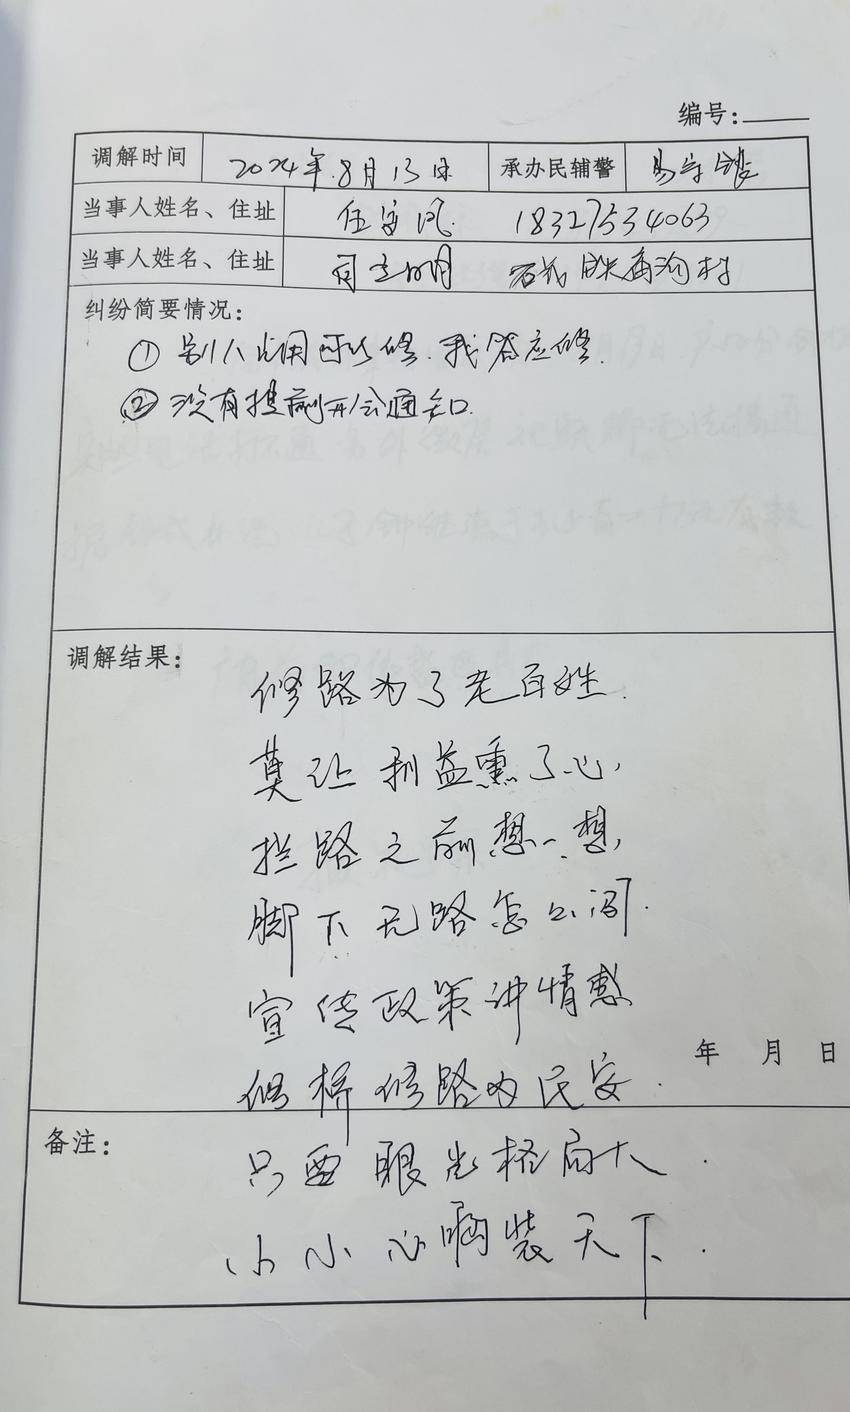 编号：
调解时间 2024年8月13日 承办民辅警 易守
当事人姓名、住址 任守凤 18327534063
当事人姓名、住址 司立明 沟村
纠纷简要情况：
① 别人占用可以修.我答应修.
② 没有提前开会通知.
调解结果：
修路为了老百姓.
莫让利益熏了心,
拦路之前想一想,
脚下无路怎么闯.
宣传政策讲情感
修桥修路为民安.
年 月 日
备注：
只要眼光格局大.
小小心胸装天下.